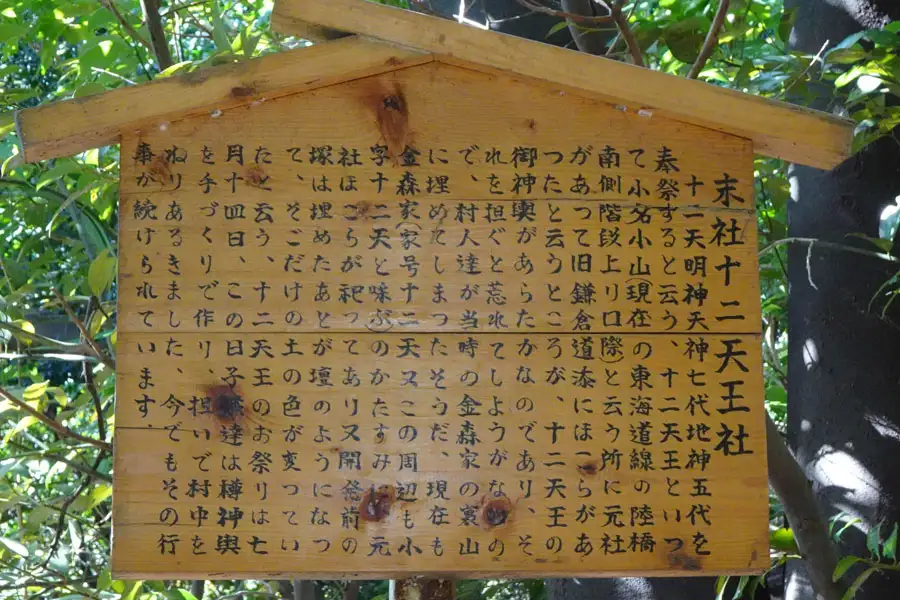 末社十二天王社
十二天明神天神七代地神五代を
奉祭すると云う、十二天王といつ
て小名小山(現在の東海道線の陸橋
南側階段上り口際)と云う所に元社
があつて旧鎌倉道添にほこらがあ
つたと云うところが、十二天王の
御神輿があらたかなのであり、そ
れを担ぐと荒れてしようがないの
で、村人達が当時の金森家の裏山
に埋めてしまつたそうだ、現在も
金森家(家号十二天又この周辺も小
字十二天と呼ぶのかたすみに元
社ほこらが祀つてあり又開発前の
塚は埋めたあとが壇のようになつ
て、そこだけの土の色が変つてい
たと云う、十二天王のお祭りは七
月十四日、この日子供達は樽神輿
を手づくりで作り、担いで村中を
ねりあるきました、今でもその行
事が続けられています、